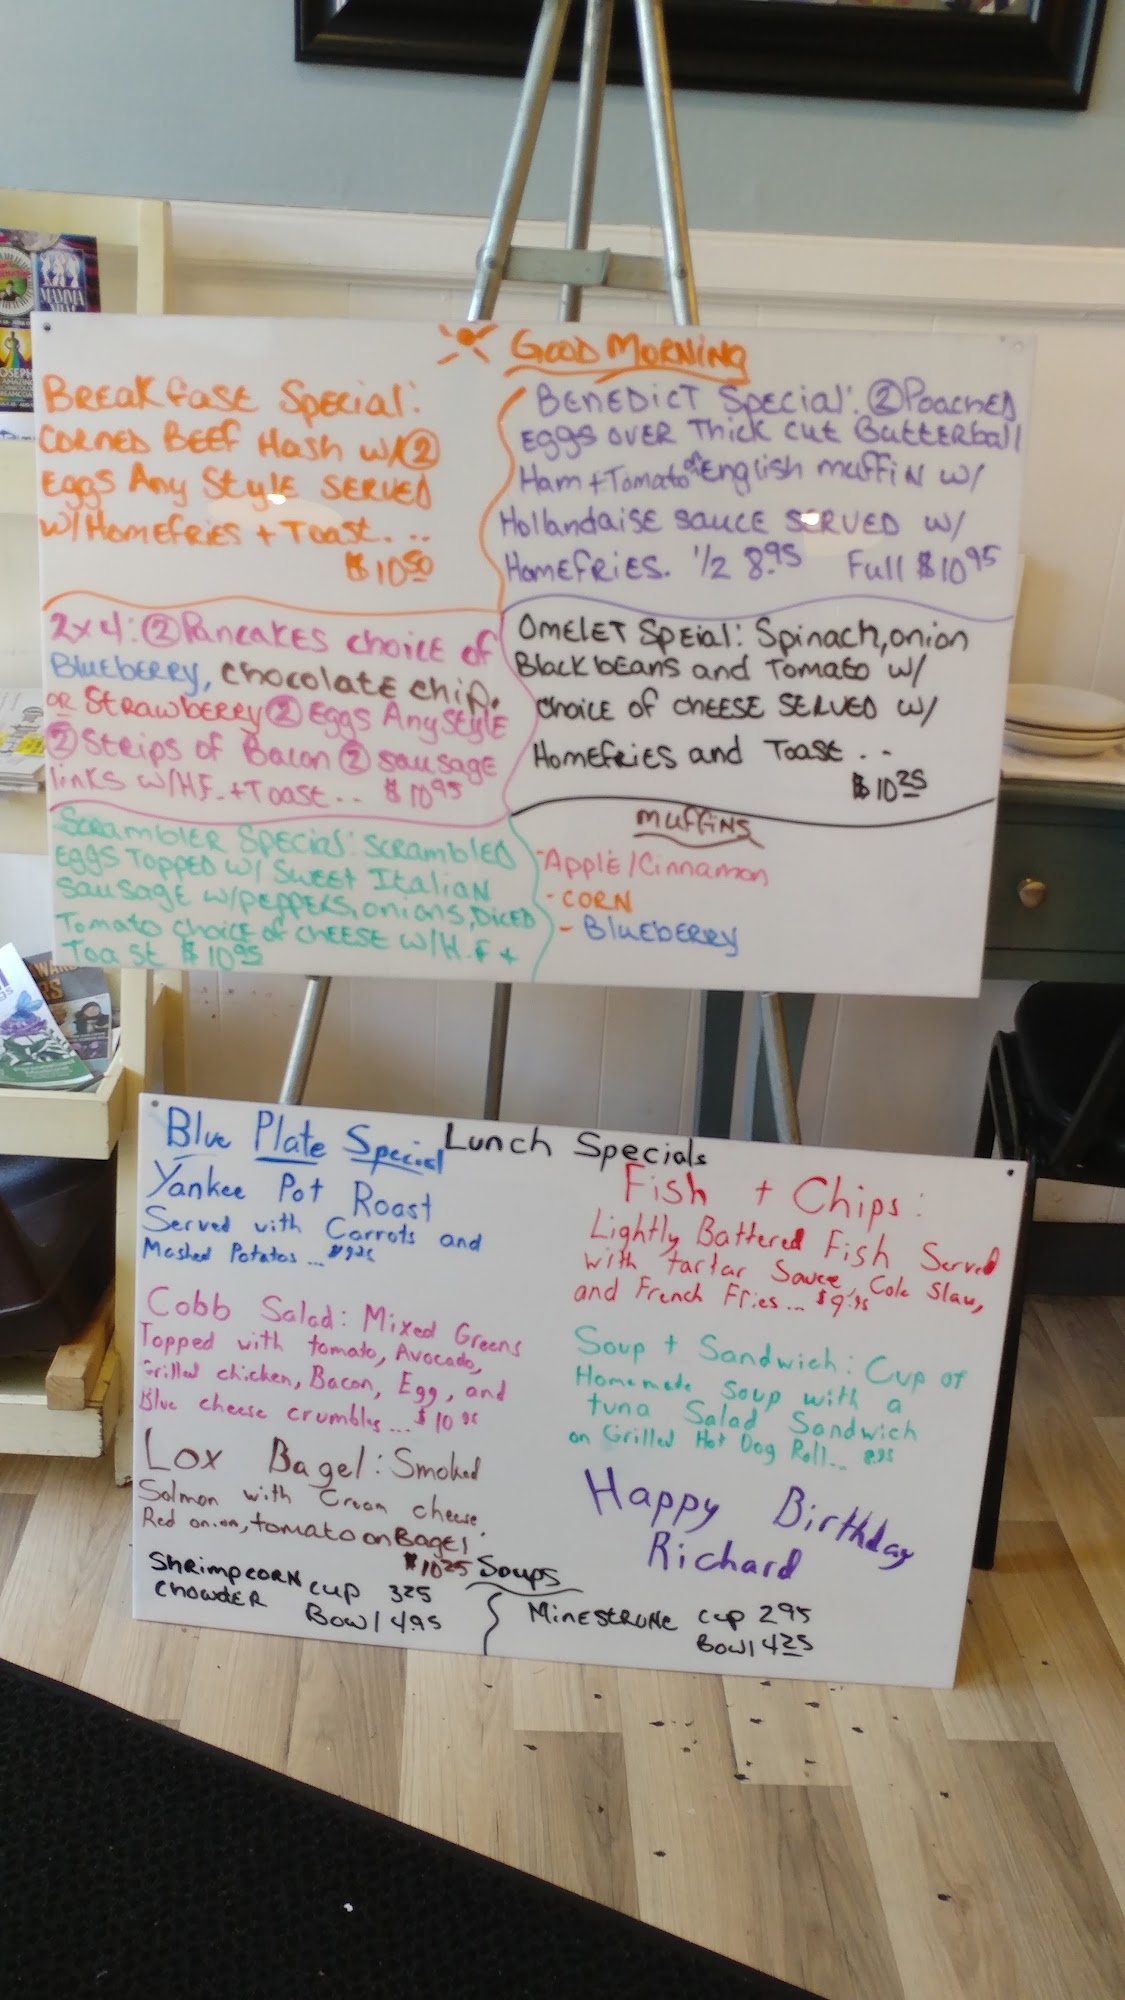 MAMMA
OSEPH
AMAZING
GOOD MORNING
BREAKFAST SPECIAL:
CORNED BEEF HASH W/ 2
EGGS ANY STYLE SERVED
W/ HOMEFRIES + TOAST. ..
$10 50
BENEDICT SPECIAL: 2 POACHED
EGGS OVER THICK CUT BUTTERBALL
HAM + TOMATO on ENGLISH MUFFIN W/
HOLLANDAISE SAUCE SERVED W/
HOMEFRIES. 1/2 8.95 FULL $10 95
2x4: 2 PANCAKES CHOICE OF
BLUEBERRY, CHOCOLATE CHIP,
OR STRAWBERRY 2 EGGS ANY STYLE
2 STRIPS OF BACON 2 SAUSAGE
LINKS W/ H.F. + TOAST... $10 95
OMELET SPEIAL: SPINACH, ONION
BLACK BEANS AND TOMATO W/
CHOICE OF CHEESE SERVED W/
HOMEFRIES AND TOAST . .
$10 25
SCRAMBLER SPECIAL: SCRAMBLED
EGGS TOPPED W/ SWEET ITALIAN
SAUSAGE W/ PEPPERS, ONIONS, DICED
TOMATO CHOICE OF CHEESE W/ H.F +
TOAST $10 95
MUFFINS
- APPLE/CINNAMON
- CORN
- BLUEBERRY
Blue Plate Special
Lunch Specials
Yankee Pot Roast
Served with Carrots and
Mashed Potatos ...
Cobb Salad: Mixed Greens
Topped with tomato, Avocado,
Grilled chicken, Bacon, Egg, and
Blue cheese crumbles ... $10 95
Lox Bagel: Smoked
Salmon with Cream cheese,
Red onion, tomato on Bagel
$10 25
Fish + Chips:
Lightly Battered Fish Served
with tartar Sauce, Cole Slaw,
and French Fries... $9.95
Soup + Sandwich: Cup of
Homemade Soup with a
tuna Salad Sandwich
on Grilled Hot Dog Roll... 8.95
Happy Birthday
Richard
Soups
SHRIMP CORN CUP 3 25
CHOWDER BOWL 4.95
MINESTRONE CUP 2 95
BOWL 4 25